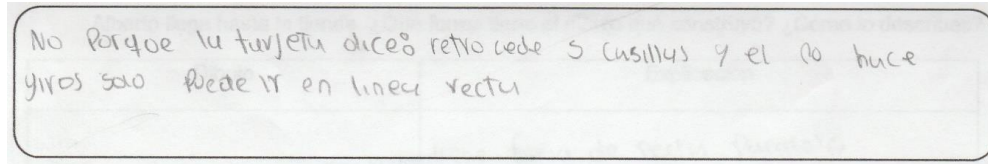 No Porque la tarjeta dice: retrocede 5 casillas y el no hace
giros solo Puede ir en linea recta